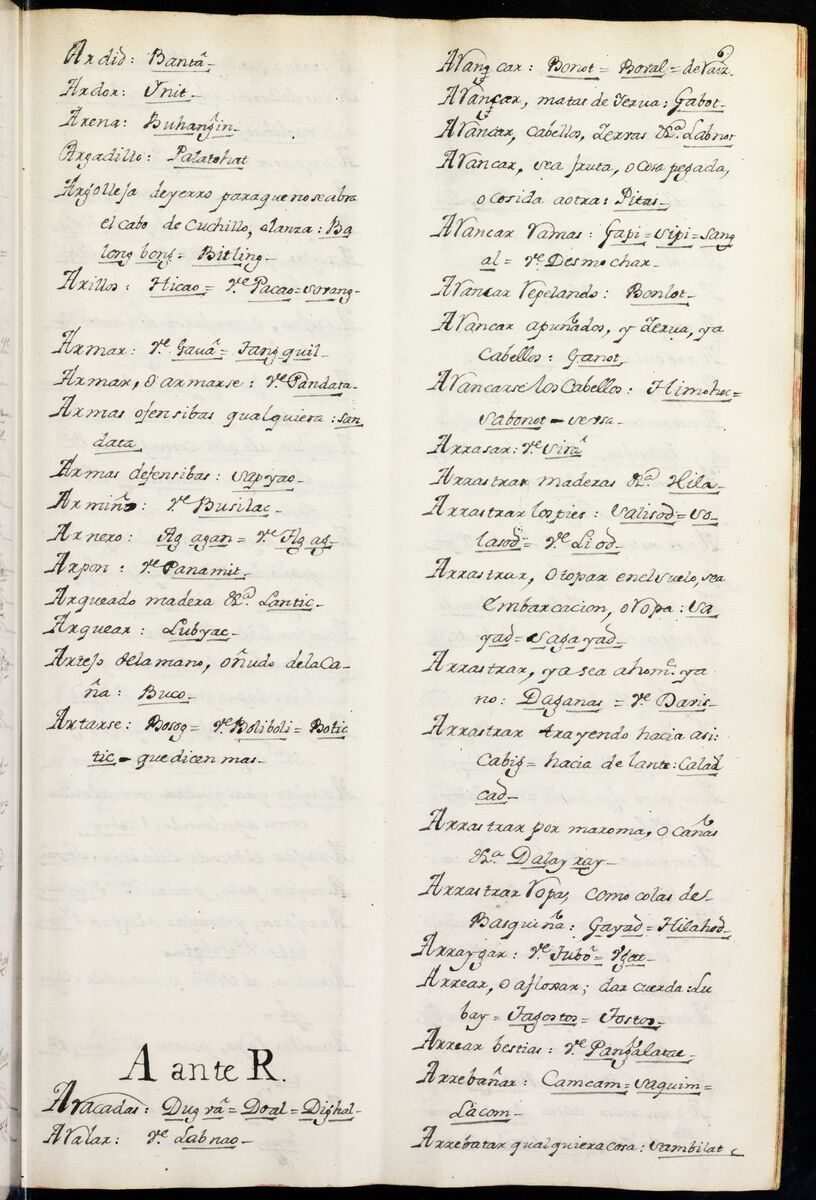 Ardid: Bantâ-
Ardor: Ynit-
Arena: Buhang̃in-
Argadillo: Palatohat
Argolleja de yerro para que no se abra
el cabo de Cuchillo, o lanza: Ba
long bong = Bitling-
Arillos: Hicao = Ve. Pacao = Sorang-
Armar: Ve. Gauâ = Tangquil-
Armar, O armarse: Ve. Pandata-
Armas ofensibas qualquiera: San
data
Armas defensibas: Sapyao-
Armiño: Ve. Busilac-
Arnero: Ag agan = Ve. Ag ag-
Arpon: Ve. Panamit-
Arqueado madera &a. Lantic-
Arquear: Lubyac-
Artejo de la mano, o ñudo de la Ca-
ña: Buco-
Artarse: Bosog = Ve. Boliboli = Botic
tic - que dicen mas-
A ante R.
Aracadas: Dugrâ = Doral = Dighal-
Aralar: Ve. Labnao-
Arançar: Bonot = Boral = de raiz.
Arançar, matas de Yerua: Gabot-
Arancar, Cabellos, Yerras &a. Labnot
Arancar, sea fruta, o cosa pegada,
o cosida a otra: Pitas-
Arancar ramas: Gapi = sipi = sang
al = Ve. Desmochar-
Arancar repelando: Bonlot-
Arancar apuñados, y Yerua, ya
Cabellos: Ganot
Arancarse los Cabellos: Himohoc =
Sabonot -
Arrasar: Ve. Sirâ
Arrastrar maderas &a. Hila-
Arrastrar los pies: Salisod = So-
lasod = Ve. Liod-
Arrastrar, O topar en el suelo, sea
Embarcacion, o ropa: Sa
yad = Sagayad-
Arrastrar, ya sea a home. ya
no: Daganas = Ve. Daris-
Arrastrar trayendo hacia asi:
Cabig = hacia delante: Calad
cad-
Arrastrar por maroma, o Cañas
&a. Dalayray-
Arrastrar ropas, como colas de
Basquiña: Gayad = Hilahod-
Arraygar: Ve. Tubô = Ygat-
Arrear, O aflojar; dar cuerda: Lu
bay = Tagostos = Tostos-
Arrear bestias: Ve. Pang̃alatae-
Arrebañar: Camcam = Saquim =
Lacom-
Arrebatar qualquiera cosa: Sambilat